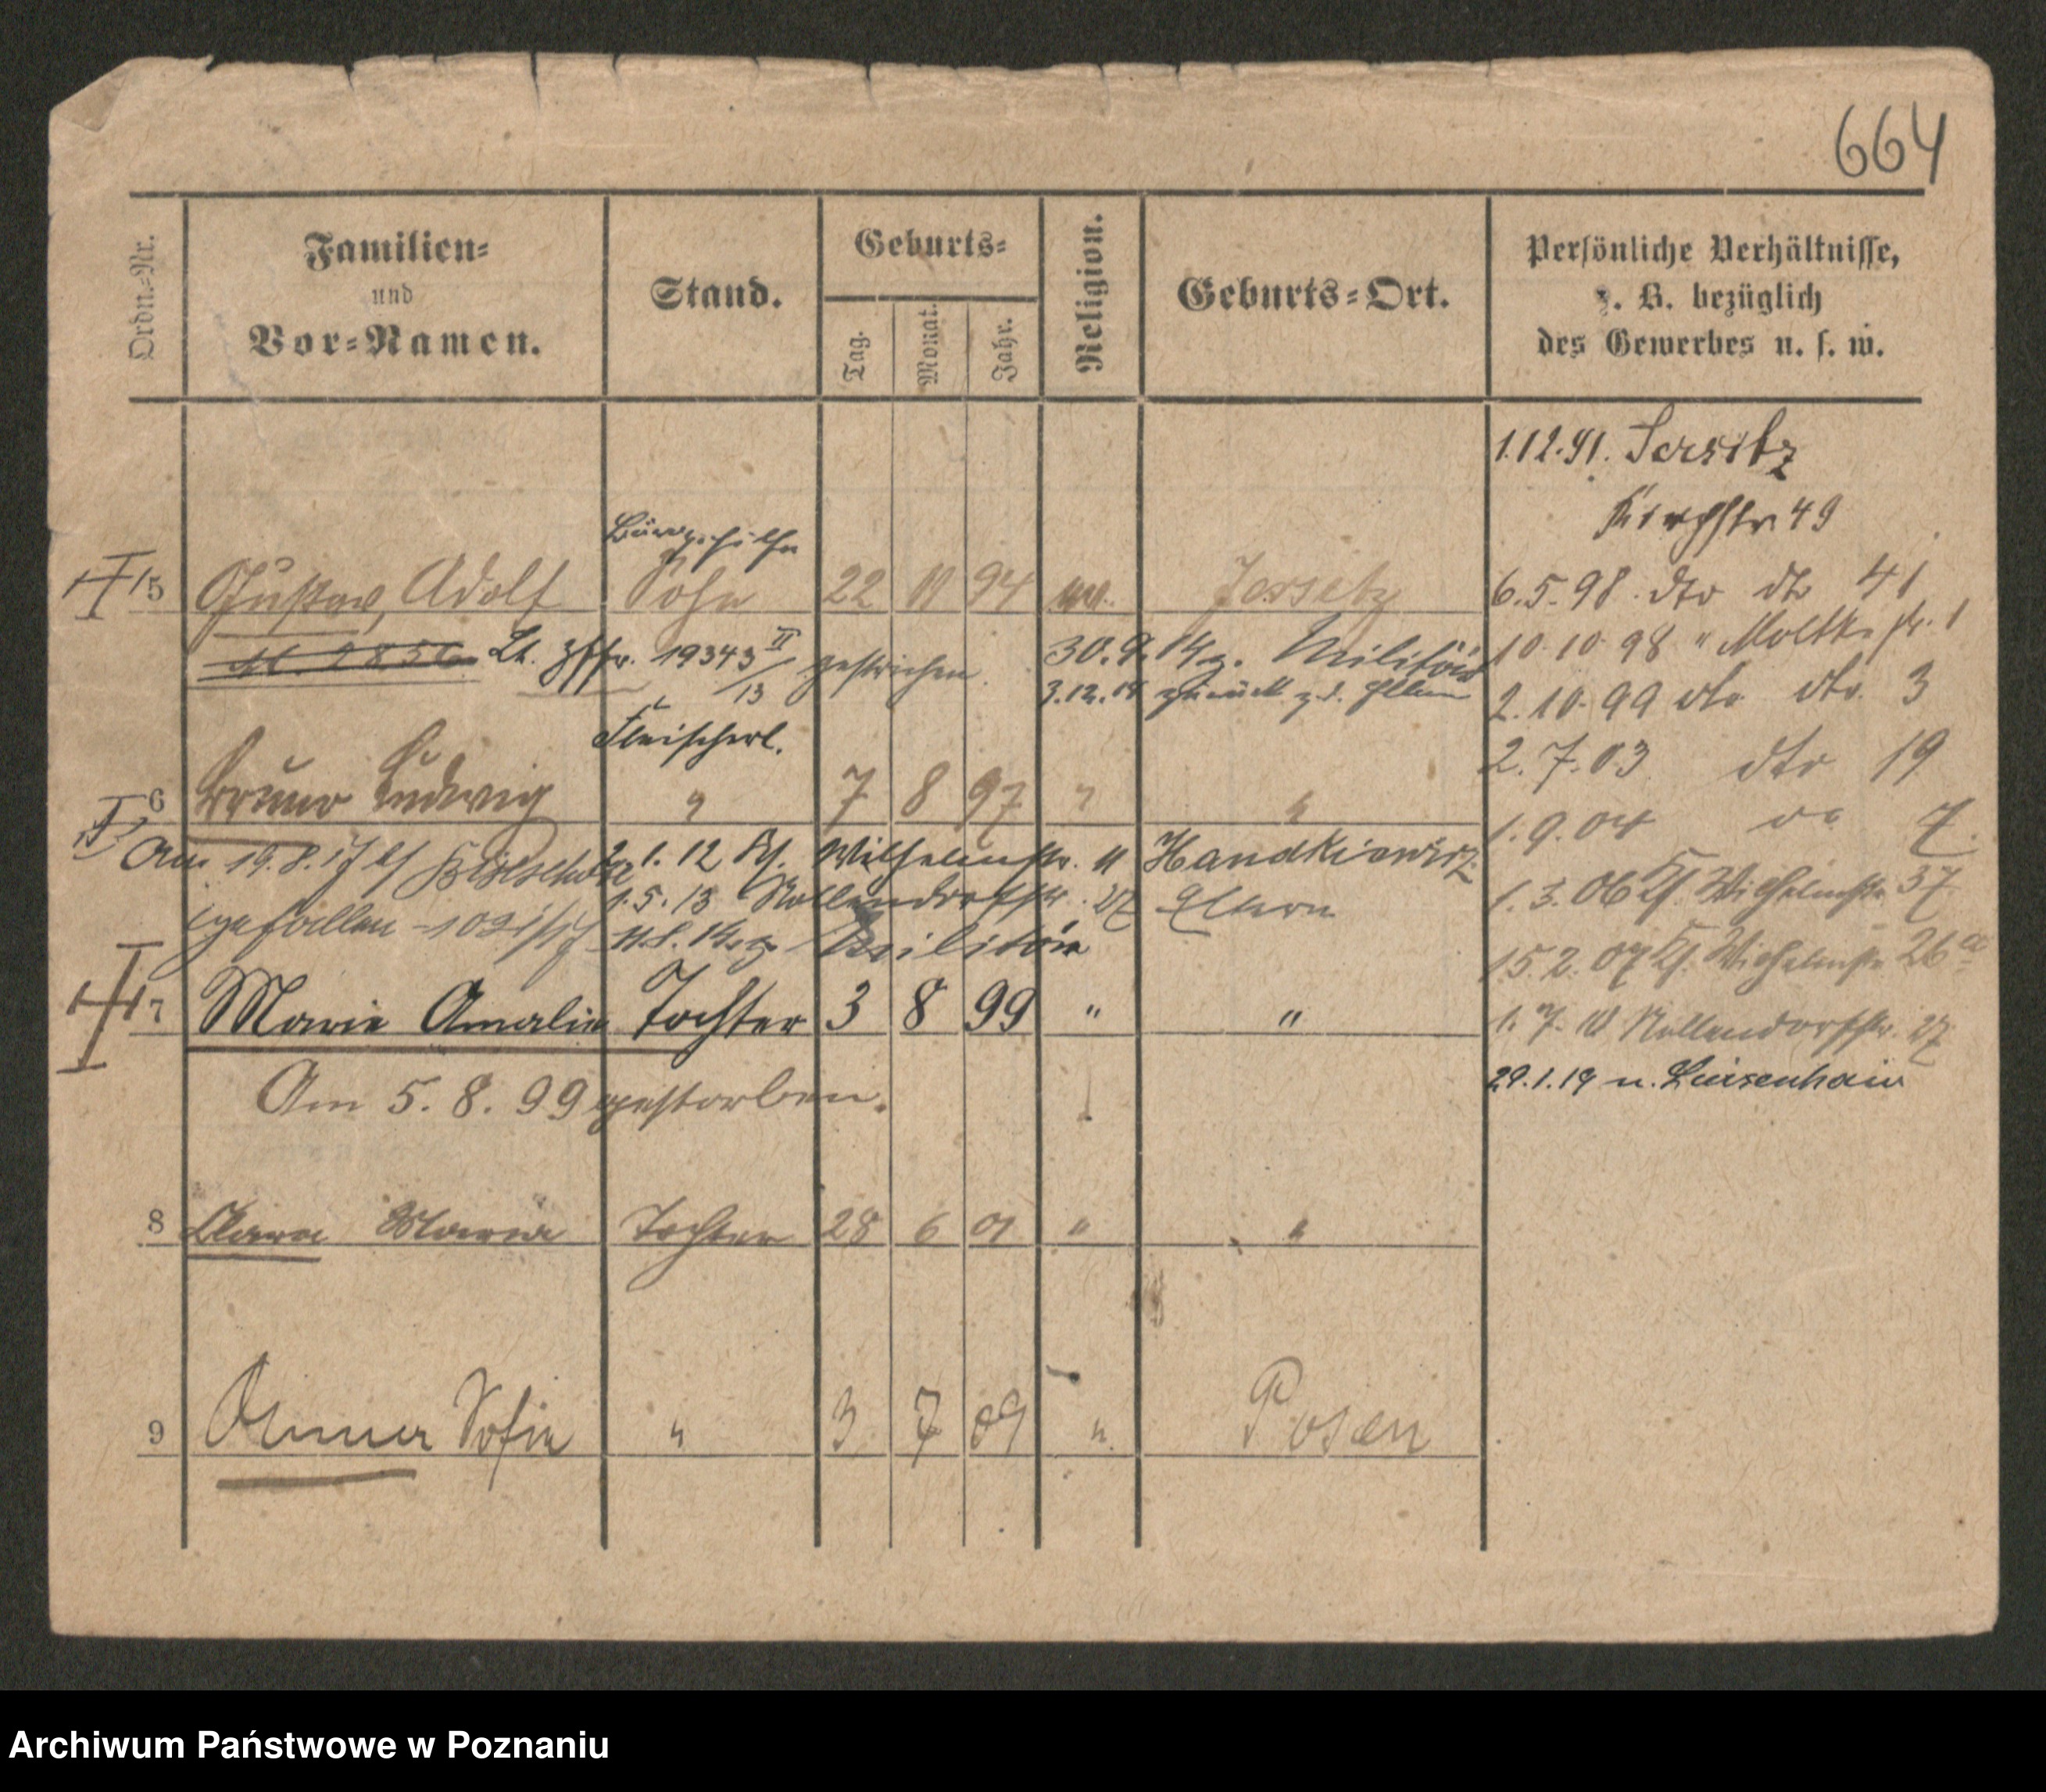 664
Ordn.-Nr.
Familien-
und
Vor-Namen.
Stand.
Geburts-
Tag.
Monat.
Jahr.
Religion.
Geburts-Ort.
Persönliche Verhältnisse,
z. B. bezüglich
des Gewerbes u. s. w.
1.12.91. Jersitz
Kirchstr 49
6.5.98. dto dto 41
10.10.98 " Moltkestr. 1
2.10.99 dto dto. 3
2.7.03 dto 19
1.9.04 do 7.
1.3.06 Kf. Wilhelmstr 37
15.2.07 Kf. Wilhelmstr 26a
1.7.10 Nollendorfstr. 27
29.1.19 n. Luisenhain
5 Gustav, Adolf Sohn 22 11 94 ev. Jersitz
Lt. 19343 II/13 gestrichen. 30.9.14 z. Militär
3.12.18 zurück z. d. Eltern
Fleischerl.
6 Bruno Ludwig " 7 8 97 " "
Am 19.8.17 bei
gefallen
2.1.12 Kf. Wilhelmstr. 11 Handkiewicz
1.5.13 Nollendorfstr. 27 Eltern
z. Militär
7 Marie Amalie Tochter 3 8 99 " "
Am 5.8.99 gestorben.
8 Clara Maria Tochter 28 6 01 " "
9 Sofie " 3 7 09 " Posen
Archiwum Państwowe w Poznaniu